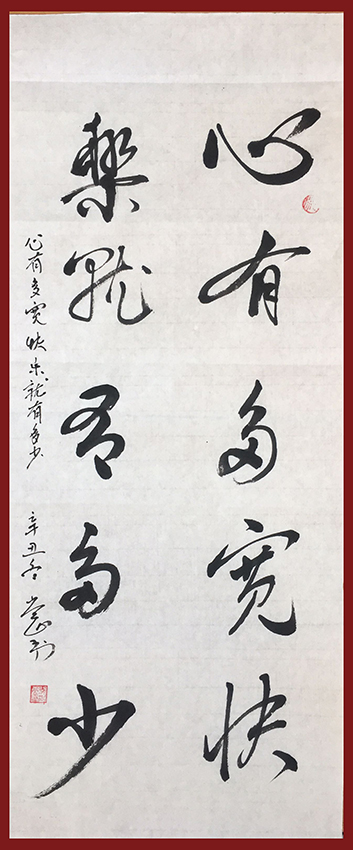 心有多宽快
樂就有多少
心有多宽快乐就有多少
辛丑冬